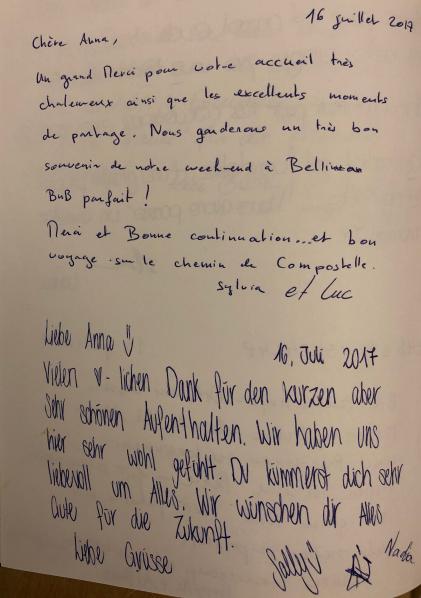 16 juillet 2017
Chère Anna,
Un grand Merci pour votre accueil très
chaleureux ainsi que les excellents moments
de partage. Nous garderons un très bon
souvenir de notre week-end à
BnB parfait !
Merci et Bonne continuation...et bon
voyage sur le chemin de Compostelle.
Sylvia et Luc
Liebe Anna
16. Juli 2017
Vielen ♡-lichen Dank für den kurzen aber
sehr schönen Aufenthalten. Wir haben uns
hier sehr wohl gefühlt. Du kümmerst dich sehr
liebevoll um Alles. Wir wünschen dir Alles
Gute für die Zukunft.
Liebe Grüsse
Sally Nadia